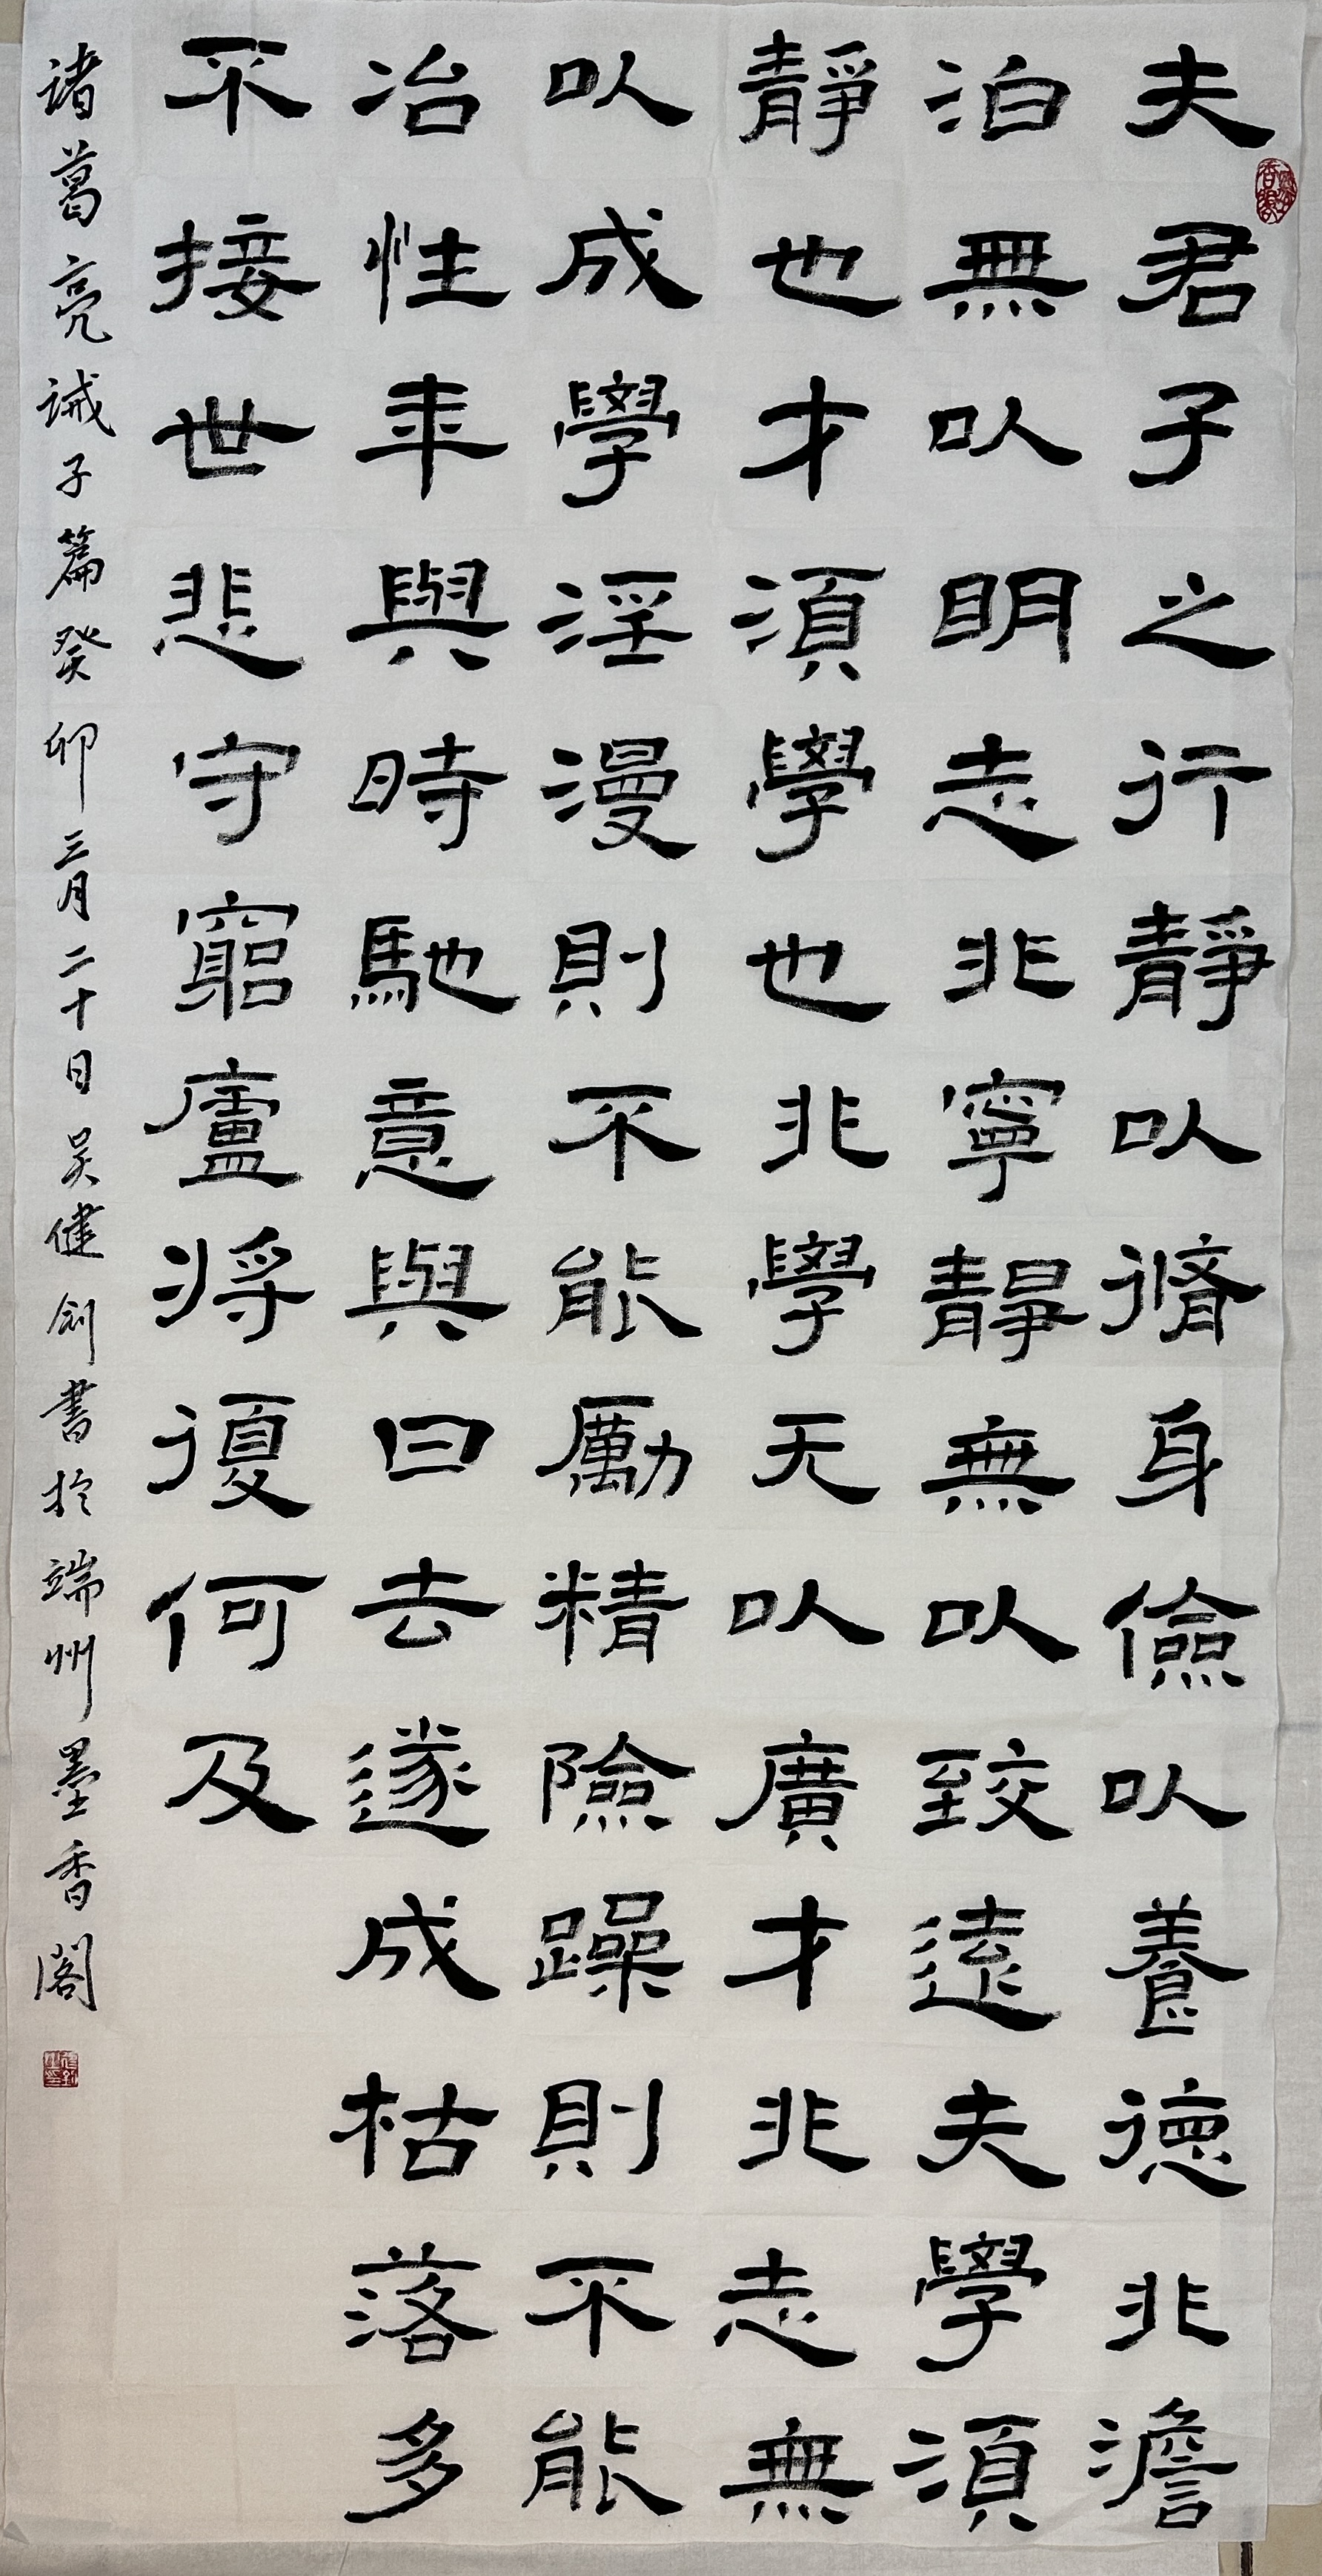 夫君子之行靜以脩身儉以養德非澹
泊無以明志非寧靜無以致遠夫學須
靜也才須學也非學无以廣才非志無
以成學淫漫則不能勵精險躁則不能
冶性年與時馳意與日去遂成枯落多
不接世悲守窮廬將復何及
诸葛亮诫子篇癸卯三月二十日吴健剑書於端州墨香阁